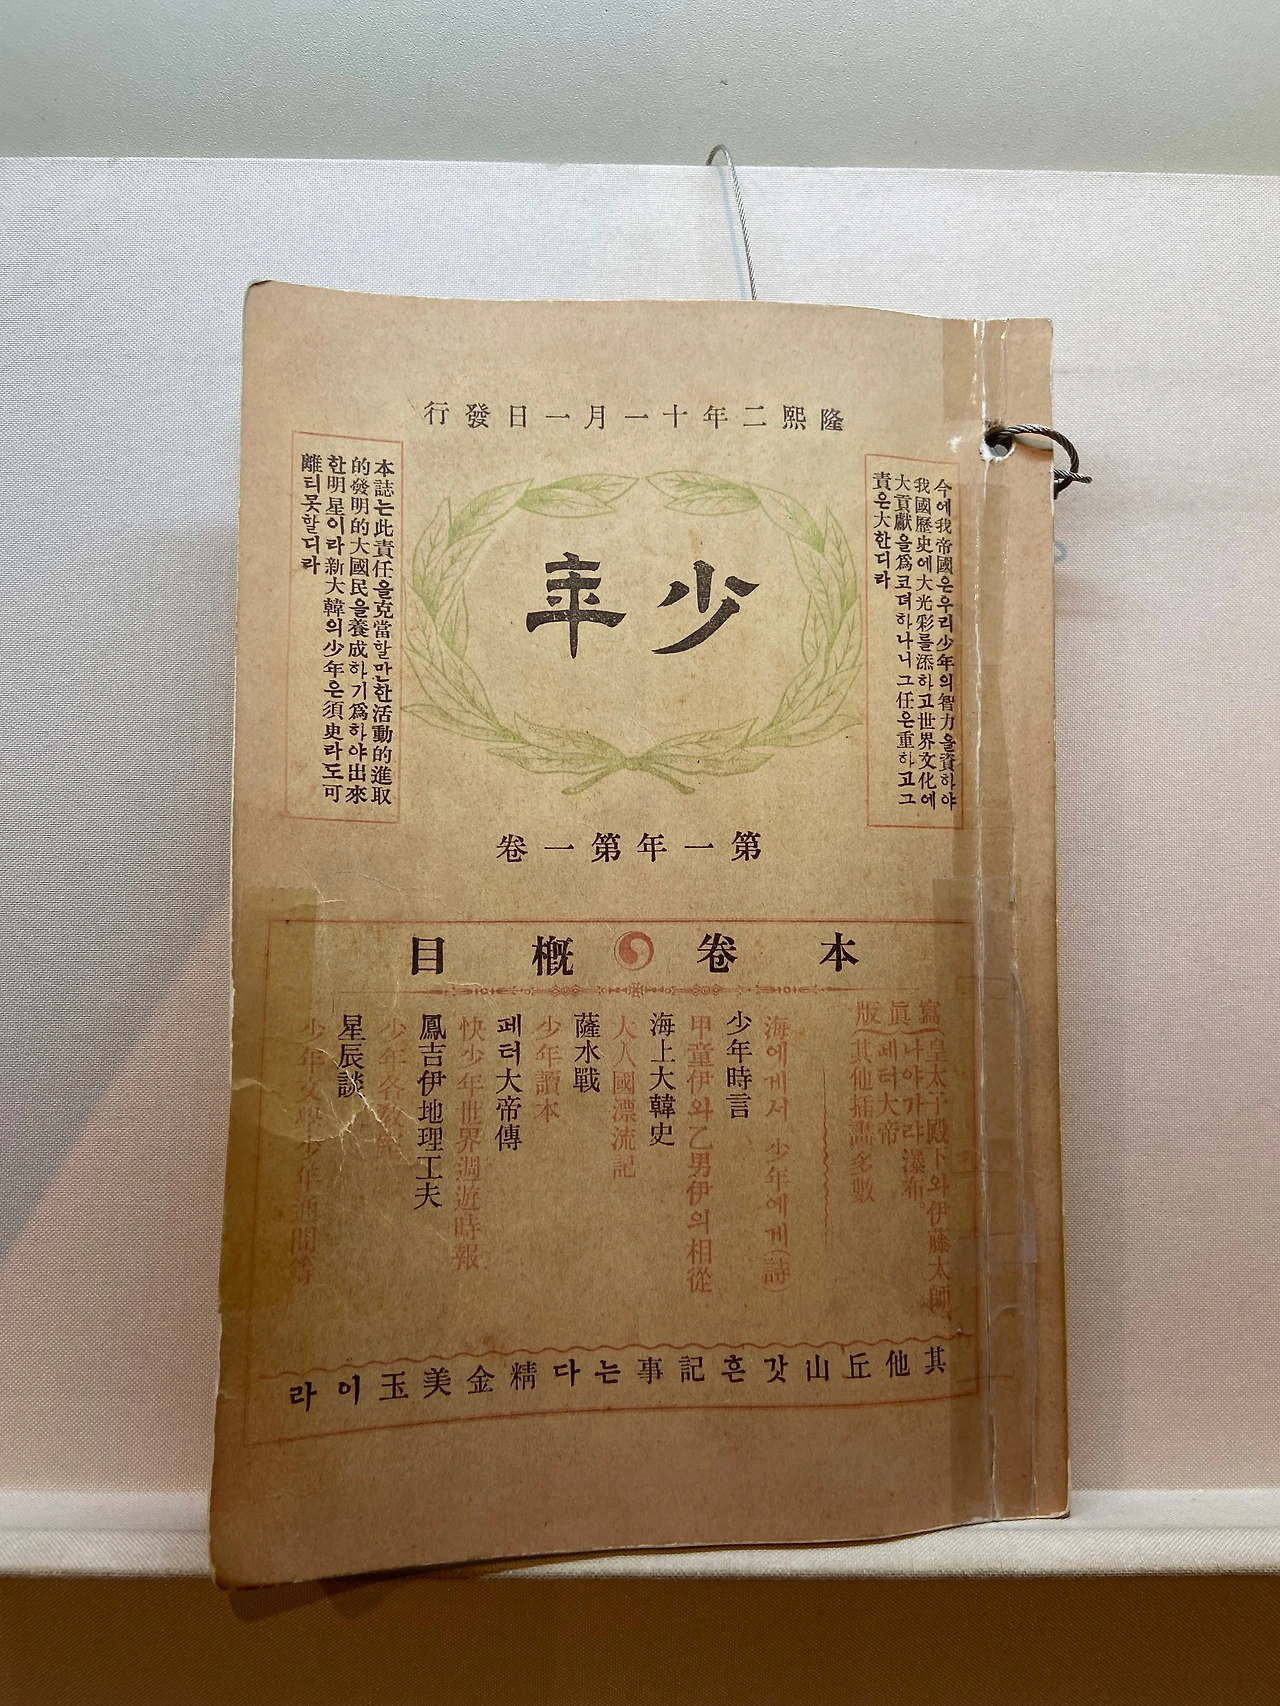 隆熙二年十一月一日發行
今에我帝國은우리少年의智力을資하야
我國歷史에大光彩를添하고世界文化에
大貢獻을爲코뎌하나니그任은重하고그
責은大한디라
少年
本誌는此責任을克當할만한活動的進取
的發明的大國民을養成하기爲하야出來
한明星이라新大韓의少年은須臾라도可
離티못할디라
第一年第一卷
本卷槪目
寫眞版
皇太子殿下와伊藤太師、
나야가라瀑布。
페터大帝
其他揷畵多數
海에게서 少年에게(詩)
少年時言
甲童伊와乙男伊의相從
海上大韓史
大人國漂流記
薩水戰
少年讀本
페터大帝傳
快少年世界週遊時報
鳳吉伊地理工夫
少年各敎室
星辰談
少年文學少年通間等
其他丘山갓흔記事는다精金美玉이라